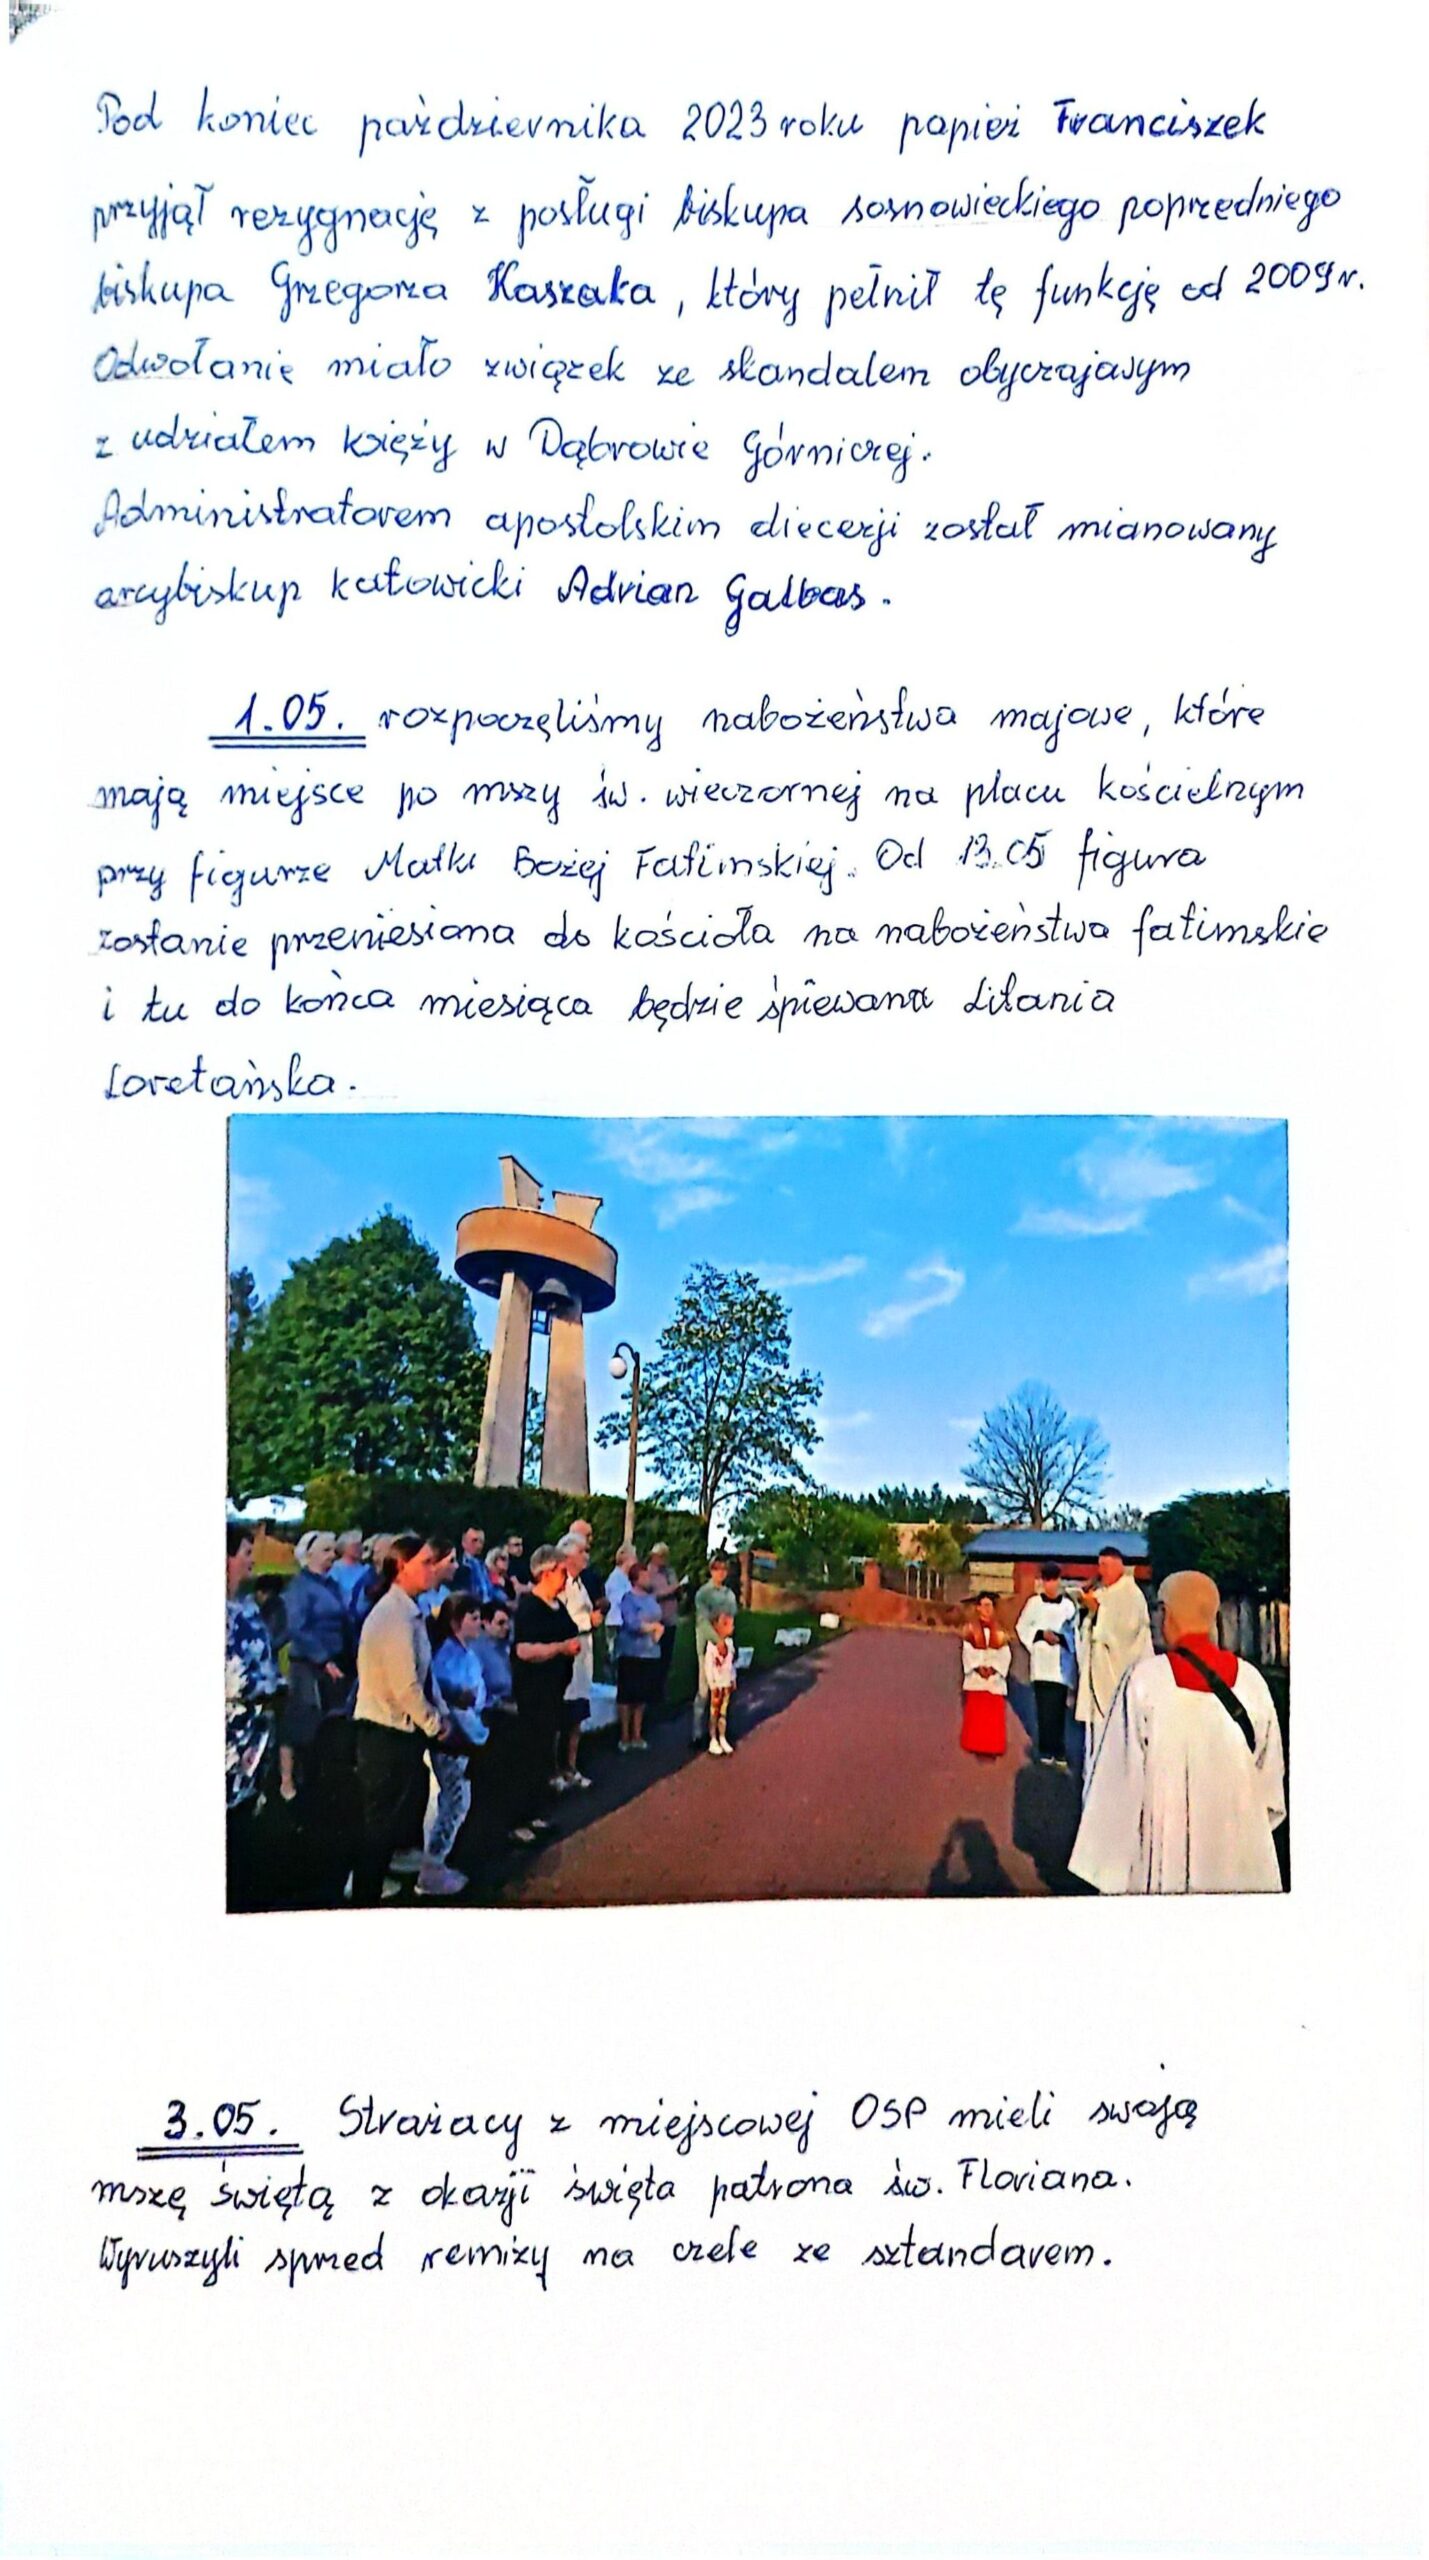 Pod koniec października 2023 roku papież Franciszek
przyjął rezygnację z posługi biskupa sosnowieckiego poprzedniego
biskupa Grzegorza Kaszaka, który pełnił tę funkcję od 2009 r.
Odwołanie miało związek ze skandalem obyczajowym
z udziałem księży w Dąbrowie Górniczej.
Administratorem apostolskim diecezji został mianowany
arcybiskup katowicki Adrian Galbas.
1.05. rozpoczęliśmy nabożeństwa majowe, które
mają miejsce po mszy św. wieczornej na placu kościelnym
przy figurze Matki Bożej Fatimskiej. Od 13.05 figura
zostanie przeniesiona do kościoła na nabożeństwa fatimskie
i tu do końca miesiąca będzie śpiewana Litania
Loretańska.
3.05. Strażacy z miejscowej OSP mieli swoją
mszę świętą z okazji święta patrona św. Floriana.
Wyruszyli sprzed remizy na czele ze sztandarem.